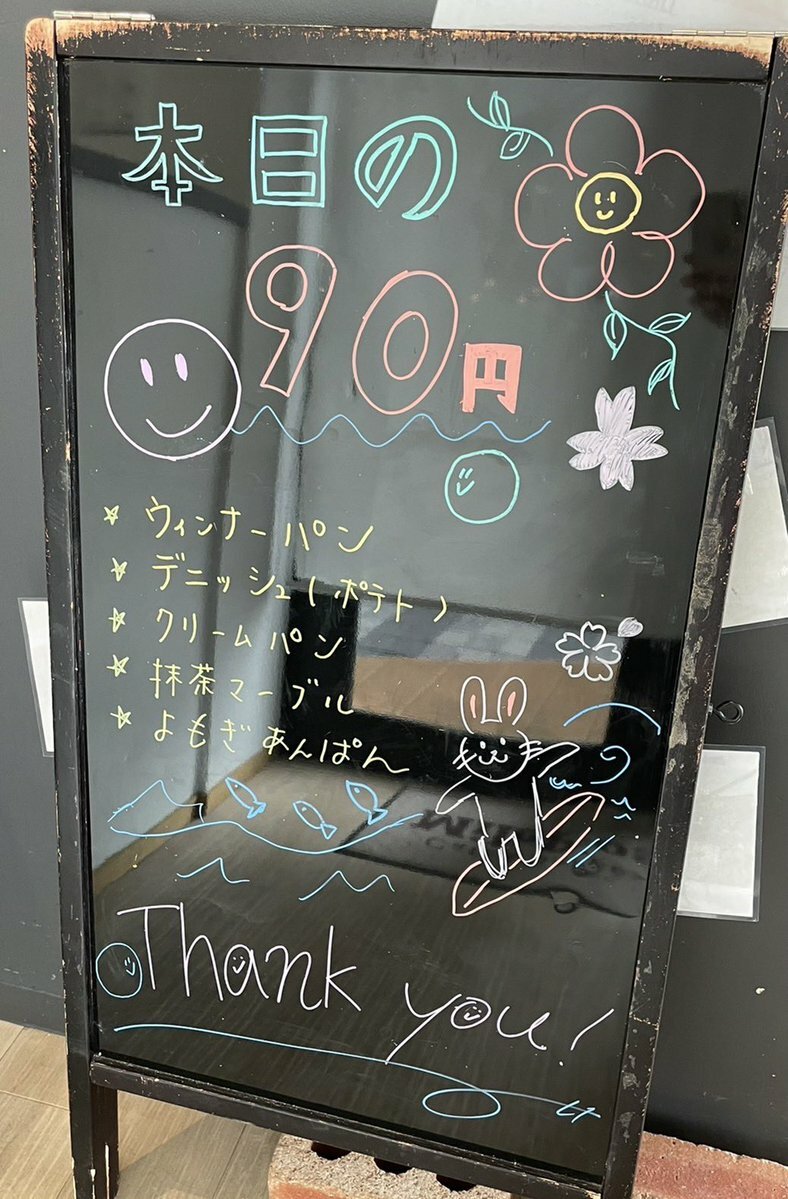 本日の
90円
☆ ウィンナーパン
☆ デニッシュ(ポテト)
☆ クリームパン
☆ 抹茶マーブル
☆ よもぎあんぱん
Thank you!